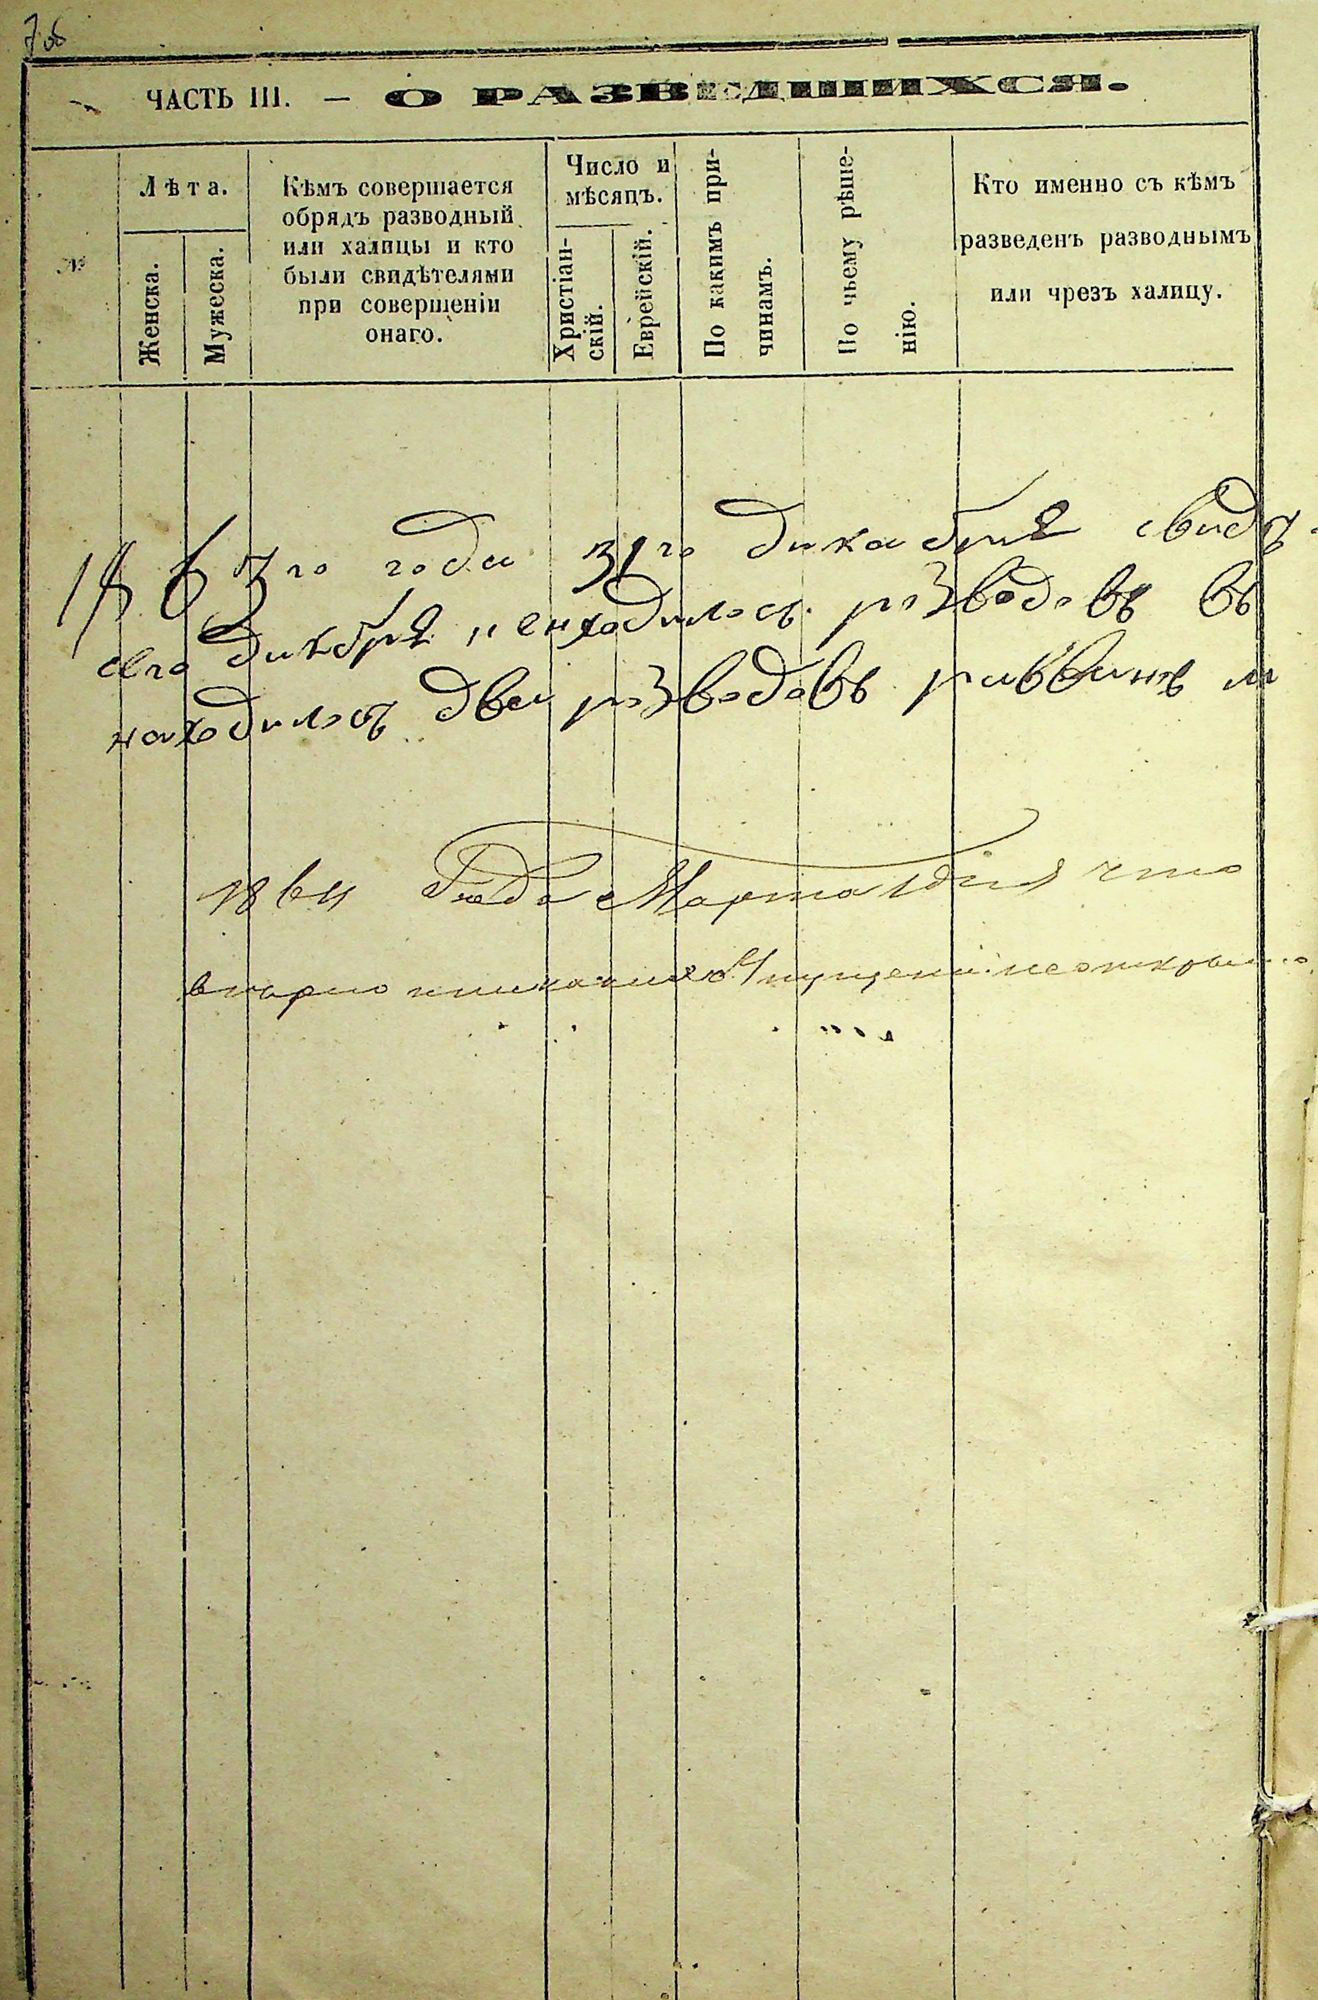 ЧАСТЬ III. — О РАЗВЕДШИХСЯ.
№
Лѣта.
Женска.
Мужеска.
Кѣмъ совершается
обрядъ разводный
или халицы и кто
были свидѣтелями
при совершеніи
онаго.
Число и
мѣсяцъ.
Христіан-
скій.
Еврейскій.
По какимъ при-
чинамъ.
По чьему рѣше-
нію.
Кто именно съ кѣмъ
разведенъ разводнымъ
или чрезъ халицу.
1863го года 31го декабря
сего находилось розводовъ въ
находилось два розводовъ раввинъ
1864 Года Марта 1 дня что